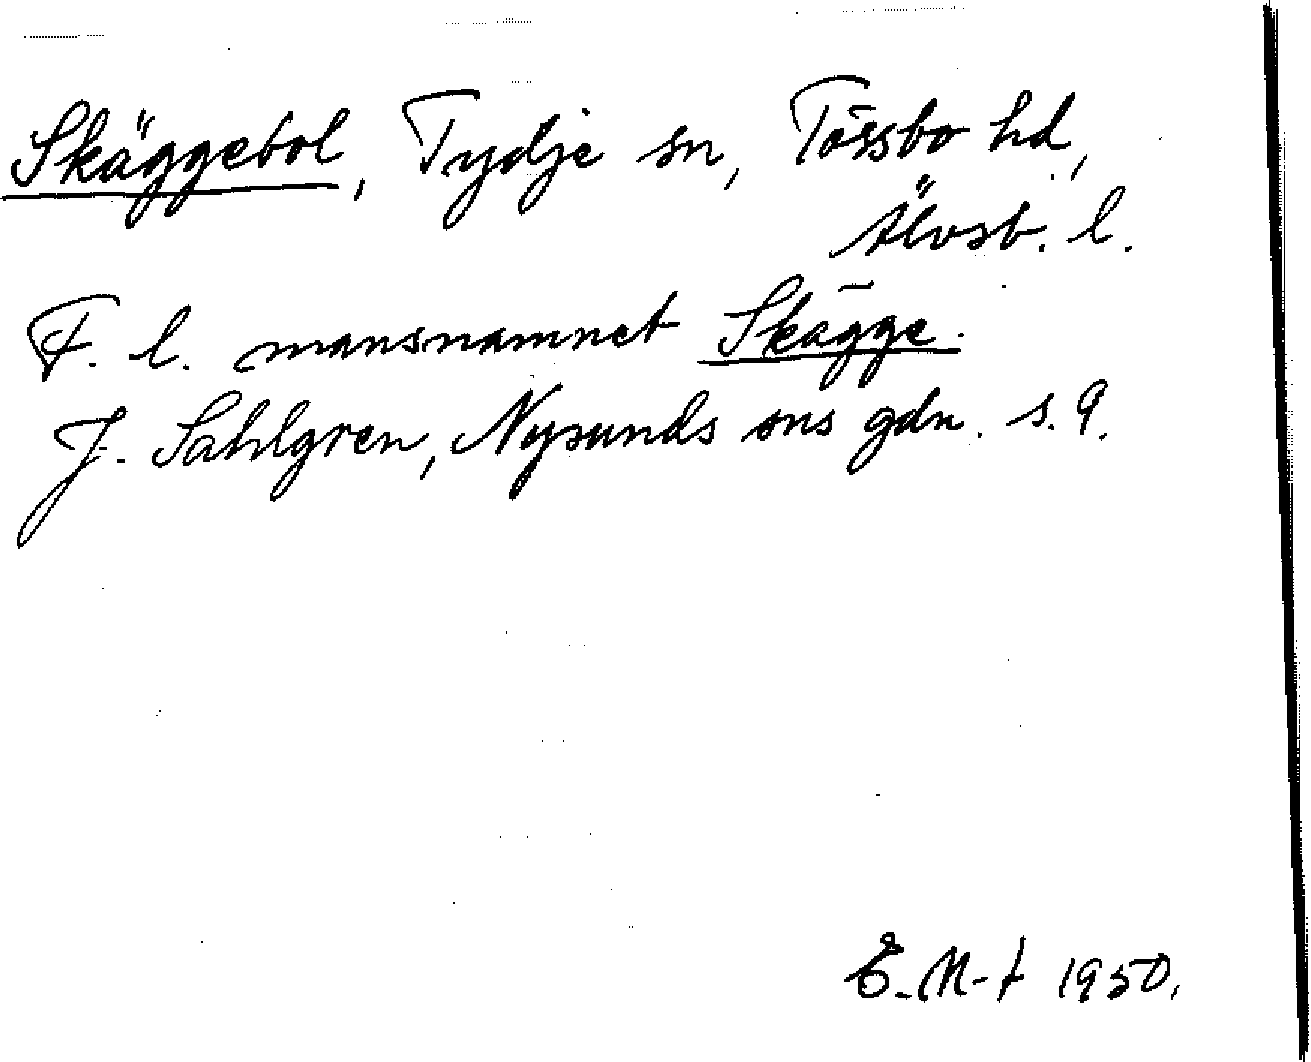 Skäggebol, Tydje sn, Tössbo hd,
Älvsb. l.
F. l. mansnamnet Skägge.
J. Sahlgren, Nysunds sns gdn. s. 9.
E. M-t 1950.